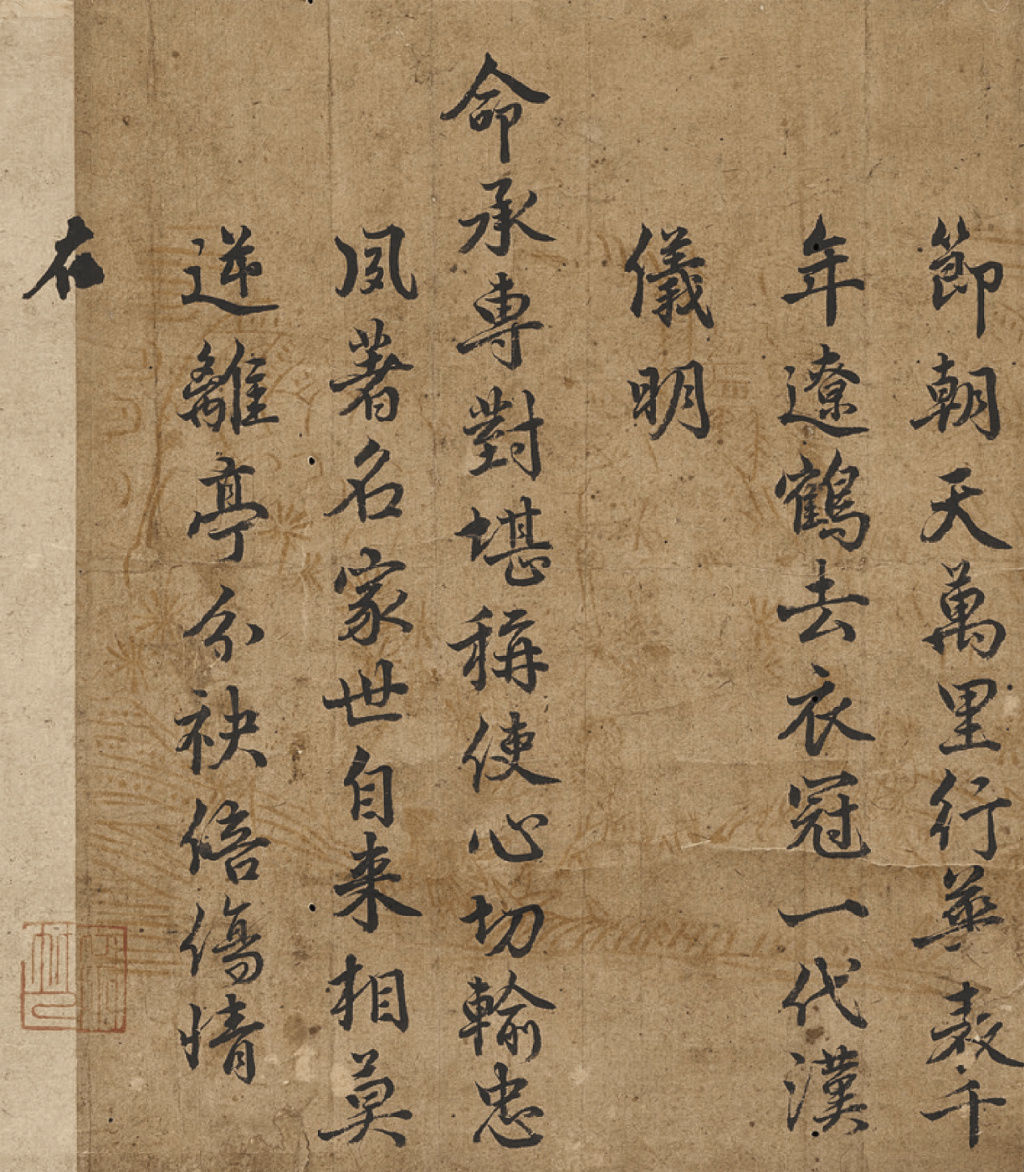 節朝天萬里行華表千
年遼鶴去衣冠一代漢
儀明
命承專對堪稱使心切輸忠
夙著名家世自来相莫
逆離亭分袂倍傷情
在